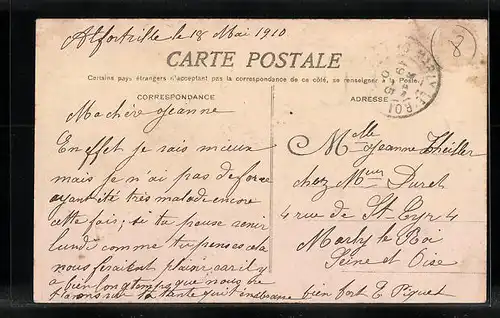 Alfortville le 18 Mai 1910
CARTE POSTALE
Certains pays étrangers n'acceptant pas la correspondance de ce côté, se renseigner à la Poste.
CORRESPONDANCE
ADRESSE
8
Ma chère Jeanne
En effet je sais mieux
mais je n'ai pas de force
ayant été très malade encore
cette fois; si tu peuse venir
lundi comme tu penses cela
nous feraient plaisir car il y
a bien longtemps que nous
ta tante qui t'embrasse bien fort E Piguet
Mlle Jeanne Theiller
chez Mr Duret
4 rue de St Cyr 4
Marly le Roi
Seine et Oise